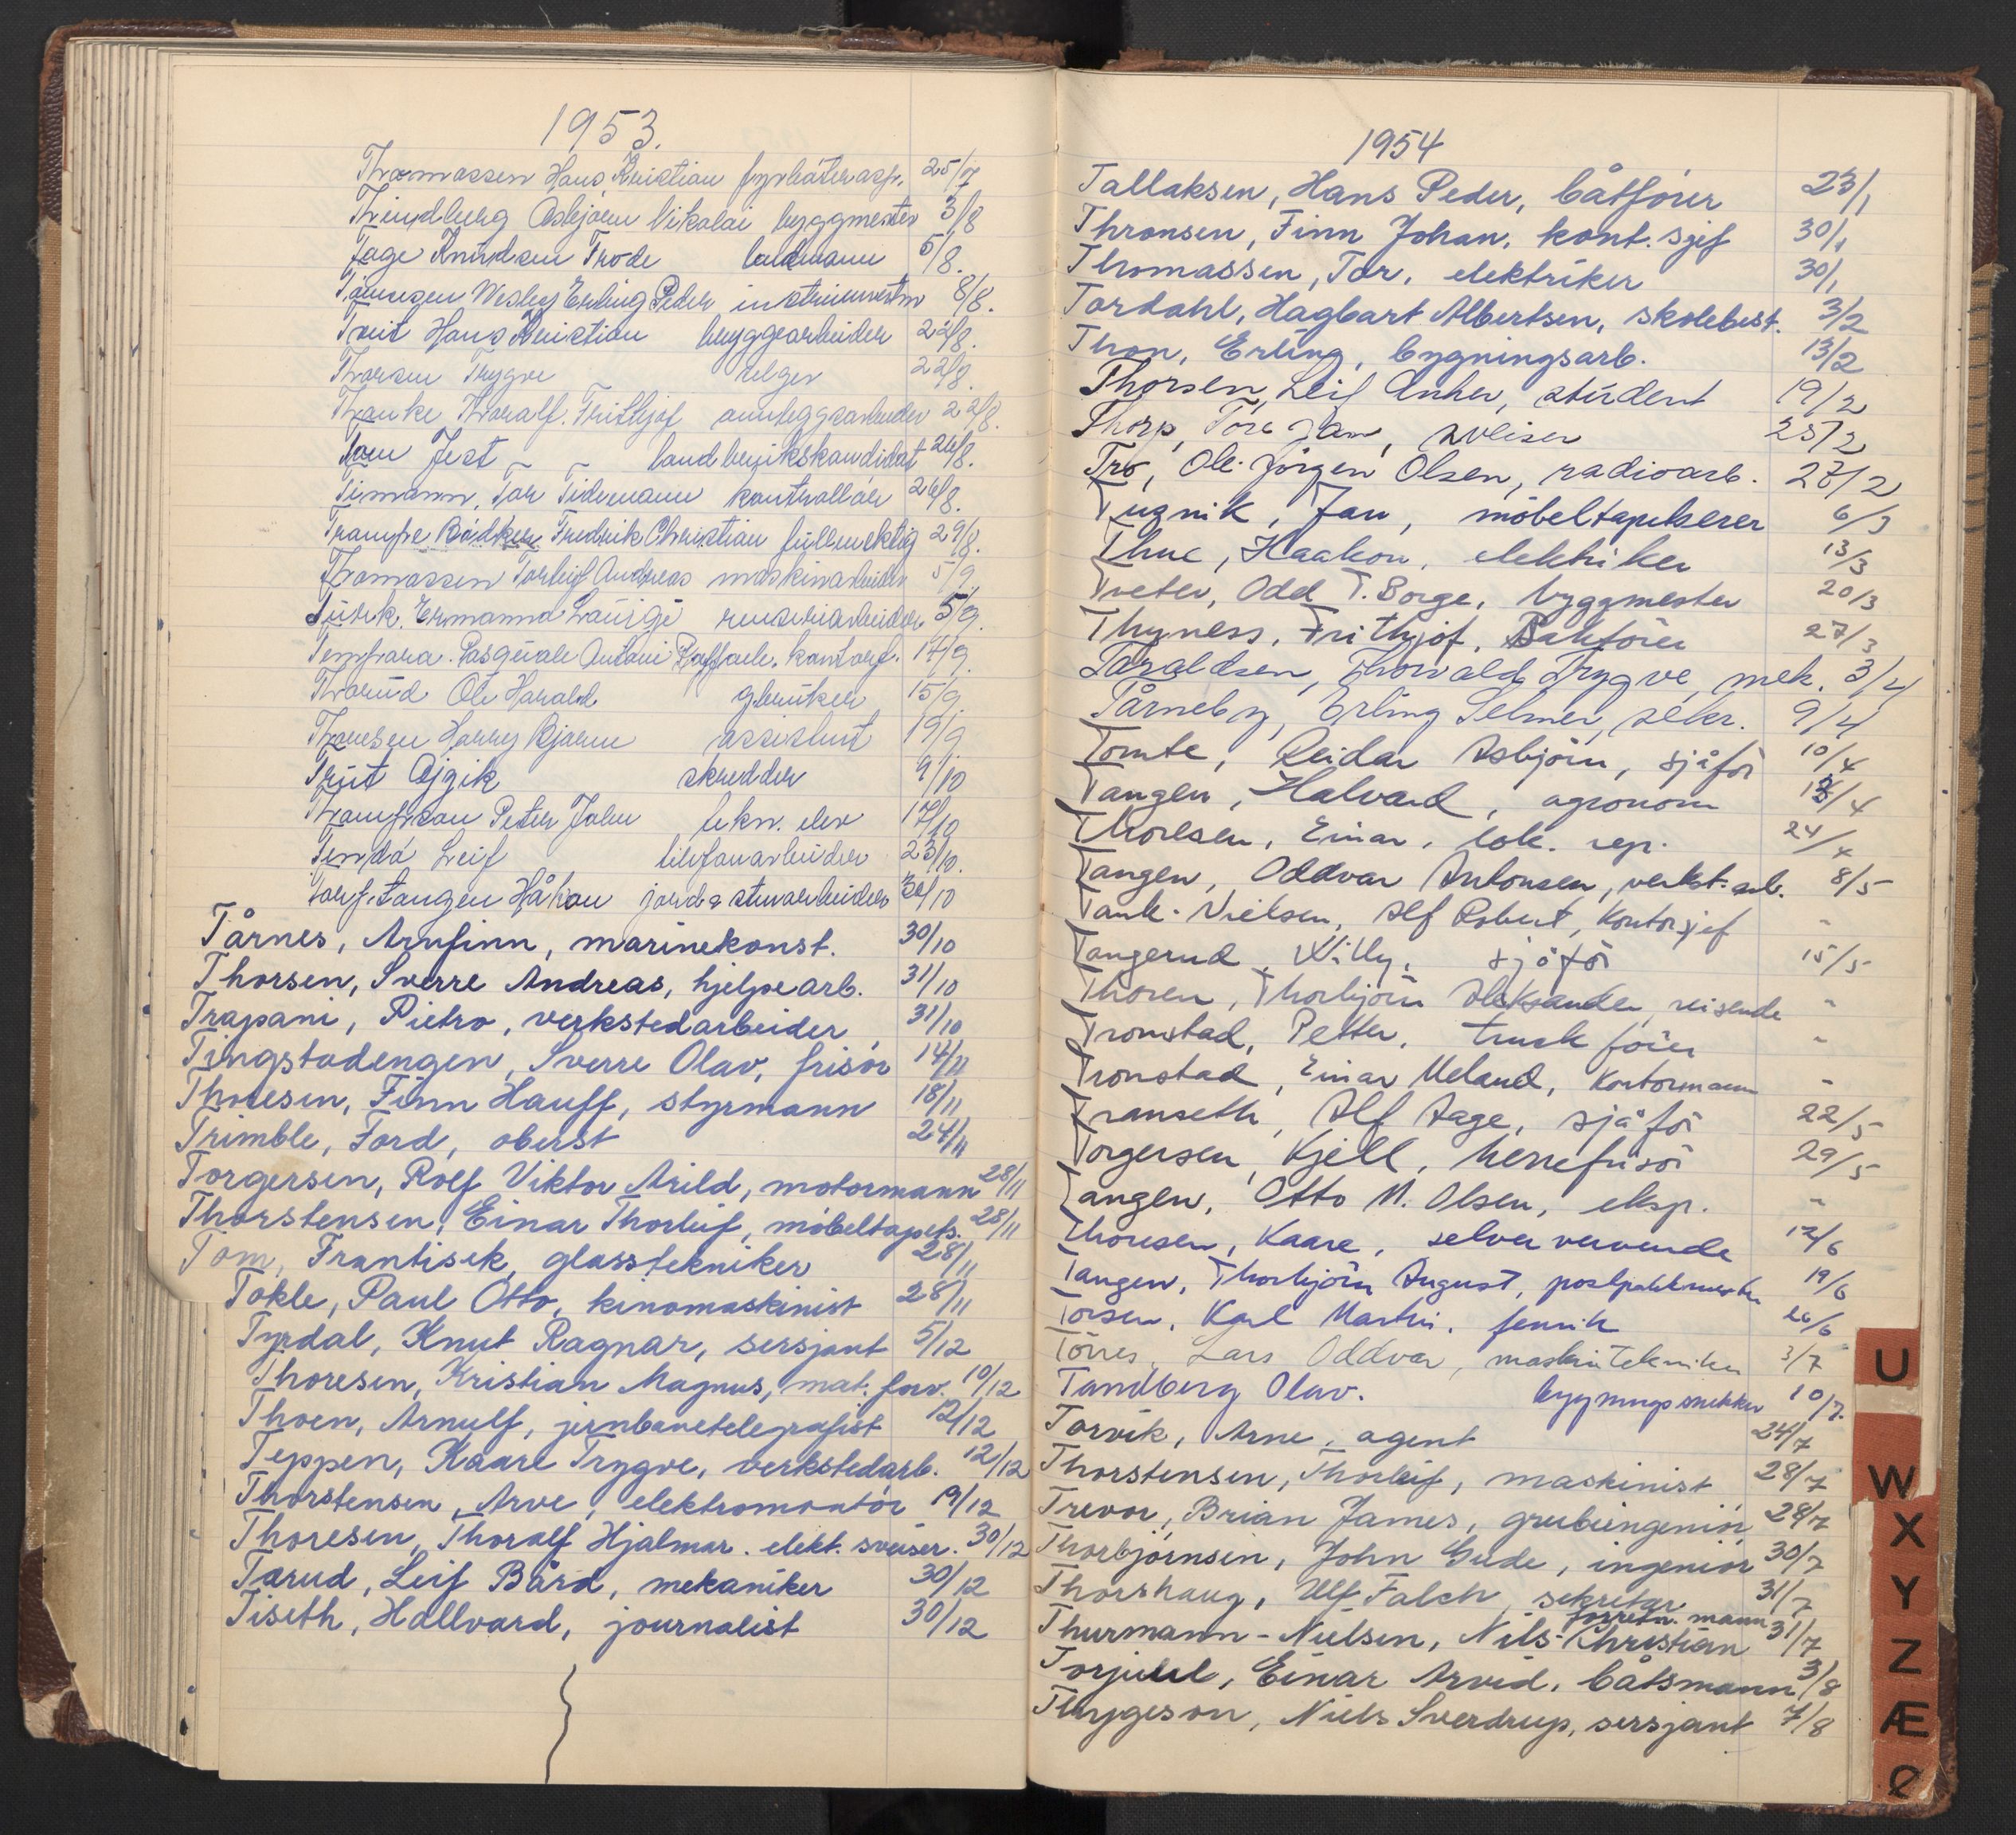 1953.
Thomassen Hans Kristian fyrbøterasp. 25/7
Asbjørn Nikolai byggmester 3/8
Tage Knudsen Frode 5/8.
Wesley Erling Peder 8/8.
Tveit Hans Kristian bryggearbeider 22/8.
Thorsen Trygve selger 22/8.
Thoralf Frithjof anleggsarbeider 22/8.
Jest landbrukskandidat 26/8.
Timann, Tor Tidemann kontrollør 26/8.
Trampe Bödker Fredrik Christian fullmektig 29/8.
Thomassen Torleif Andreas maskinarbeider 5/9
Türk, Ermanno Luigi renseriarbeider 5/9.
Pasquale Antoni Raffaele. kontorf. 14/9.
Thorud Ole Harald gbruker 15/9.
Thoresen Harry Bjarne assistent 19/9
skredder 9/10
Thompson Peter John tekn. elev 17/10
Leif telefonarbeider 23/10.
Torpstangen Håkon jord & stuvarbeider 30/10
Tårnes, Arnfinn, marinekonst. 30/10
Thorsen, Sverre Andreas, hjelpearb. 31/10
Trapani, Pietro, verkstedarbeider 31/10
Tingstadengen, Sverre Olav, frisör 14/11
Thoresen, Finn Hauff, styrmann 18/11
Trimble, Ford, oberst 24/11
Torgersen, Rolf Viktor Arild, motormann 28/11
Thorstensen, Einar Thorleif, möbeltapets. 28/11
Tom, Frantisek, glasstekniker 28/11
Tokle, Paul Otto, kinomaskinist 28/11
Tyrdal, Knut Ragnar, sersjant 5/12
Thoresen, Kristian Magnus, mat. forv. 10/12
Thoen, Arnulf, jernbanetelegrafist 12/12
Teppen, Kaare Trygve, verkstedarb. 12/12
Thorstensen, Arve, elektromontör 19/12
Thoresen, Thoralf Hjalmar. elekt. sveiser. 30/12
Tarud, Leif Bård, mekaniker 30/12
Tiseth, Hallvard, journalist 30/12
1954
Tallaksen, Hans Peder, båtförer 23/1
Thronsen, Finn Johan, kont. sjef 30/1
Thomassen, Tor, elektriker 30/1
Tordahl, Hagbart Albertsen, skolebest. 3/2
Thon, Erling, bygningsarb. 13/2
Thorsen, Leif Anker, student 19/2
Thorp, Tore Jan, sveiser 25/2
Trö, Ole Jörgen Olsen, radioarb. 27/2
Tugnik, Jan, möbeltapetserer 6/3
Thue, Haakon, elektriker 13/3
Treter, Odd T. Borge, byggmester 20/3
Thyness, Frithjof, Sakförer 27/3
Taraldsen, Thorvald Trygve, mek. 3/4
Tårneby, Erling Selmer, sekr. 9/4
Tomte, Reidar Asbjörn, sjåför 10/4
Tangen, Halvard, agronom 13/4
Thoresen, Einar, lok. rep. 24/4
Tangen, Oddvar Antonsen, verkst. arb. 8/5
Tank-Nielsen, Alf Robert, Kontorsjef "
Tangerud, Willy, sjåför 15/5
Thoren, Thorbjörn Aleksander, reisende "
Tronstad, Petter, truck förer "
Tronstad, Einar Meland, Kontormann "
Transeth, Alf Aage, sjåför 22/5
Torgersen, Kjell, herrefrisör 29/5
Tangen, Otto M. Olsen, eksp. "
Thoresen, Kaare, selververvende 12/6
Tangen, Thorbjörn August, postpakkmester 19/6
Torsen, Karl Martin, fenrik 26/6
Törres, Lars Oddvar, maskintekniker 3/7
Tandberg Olav. bygningssnekker 10/7.
Torvik, Arne, agent 24/7
Thorstensen, Thorleif, maskinist 28/7
Trevor, Brian James, grubeingeniör 28/7
Thorbjörnsen, John Gude, ingeniör 30/7
Thorshaug, Ulf Falch, sekretær 31/7
forretn. mann
Thurmann-Nielsen, Nils-Christian 31/7
Torjuul, Einar Arvid, båtsmann 3/8
Thygeson, Niels Sverdrup, sersjant 7/8
U
W
X
Y
Z
Æ
Ø